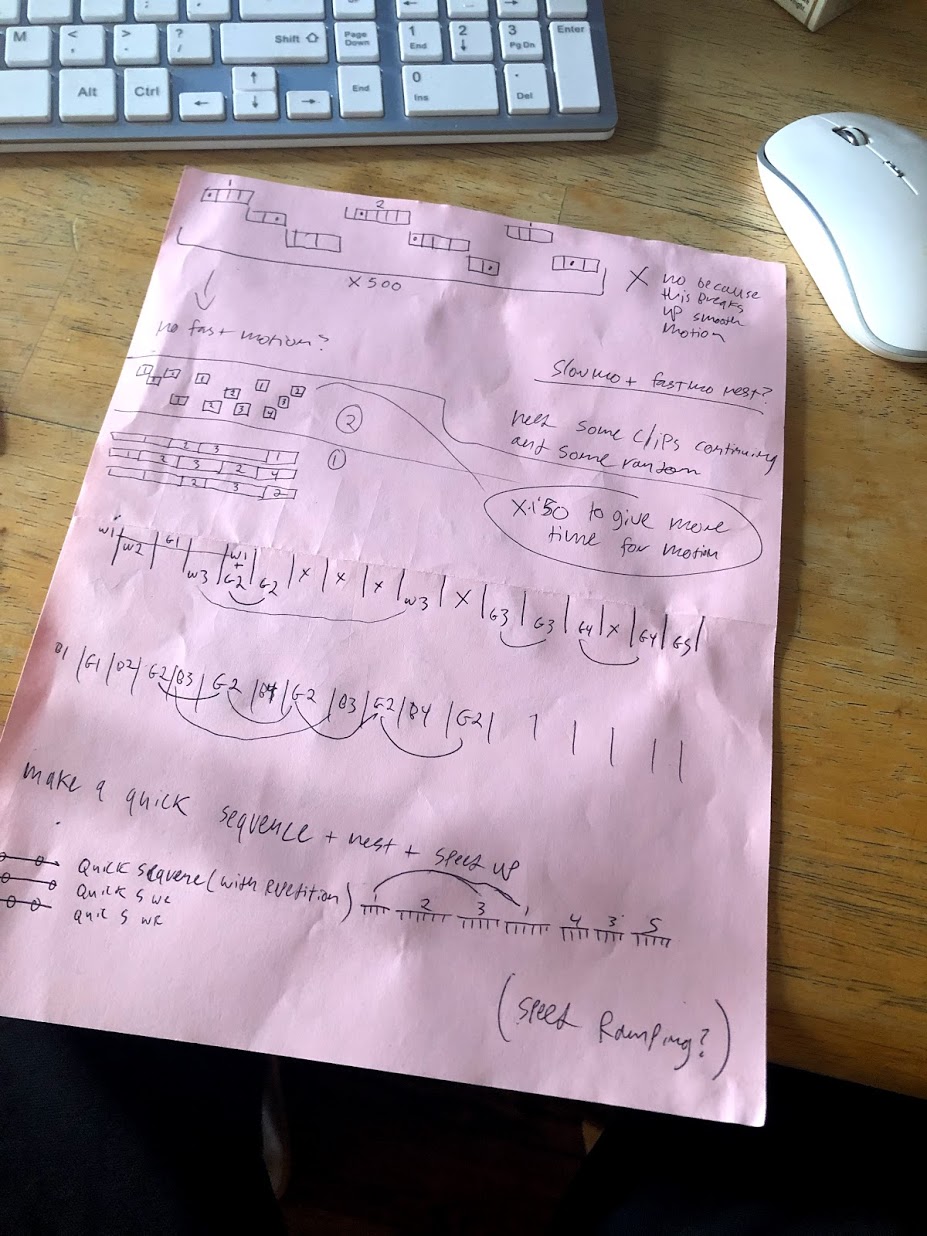 M < , > . ? / Shift ⇧ Page Down 1 End 2 ↓ 3 Pg Dn Enter
Alt Ctrl ← ↑ ↓ → End 0 Ins . Del
1
2
1
X 500
X no because
this breaks
up smooth
motion
no fast motion?
Slowmo + fastmo nest?
nest some clips continuing
and some random
2
1
2 3 1
1 2 3 2 4
2 3 2
X.150 to give more
time for motion
W1 | W2 | G1 | W3 | W1 + G2 | G2 | X | X | X | W3 | X | G3 | G3 | G4 | X | G4 | G5 |
B1 | G1 | B2 | G2 | B3 | G2 | B4 | G2 | B3 | G2 | B4 | G2 |
make a quick sequence + nest + speed up
Quick sequence (with repetition)
1 2 3 1 4 3 5
(Speed Ramping?)